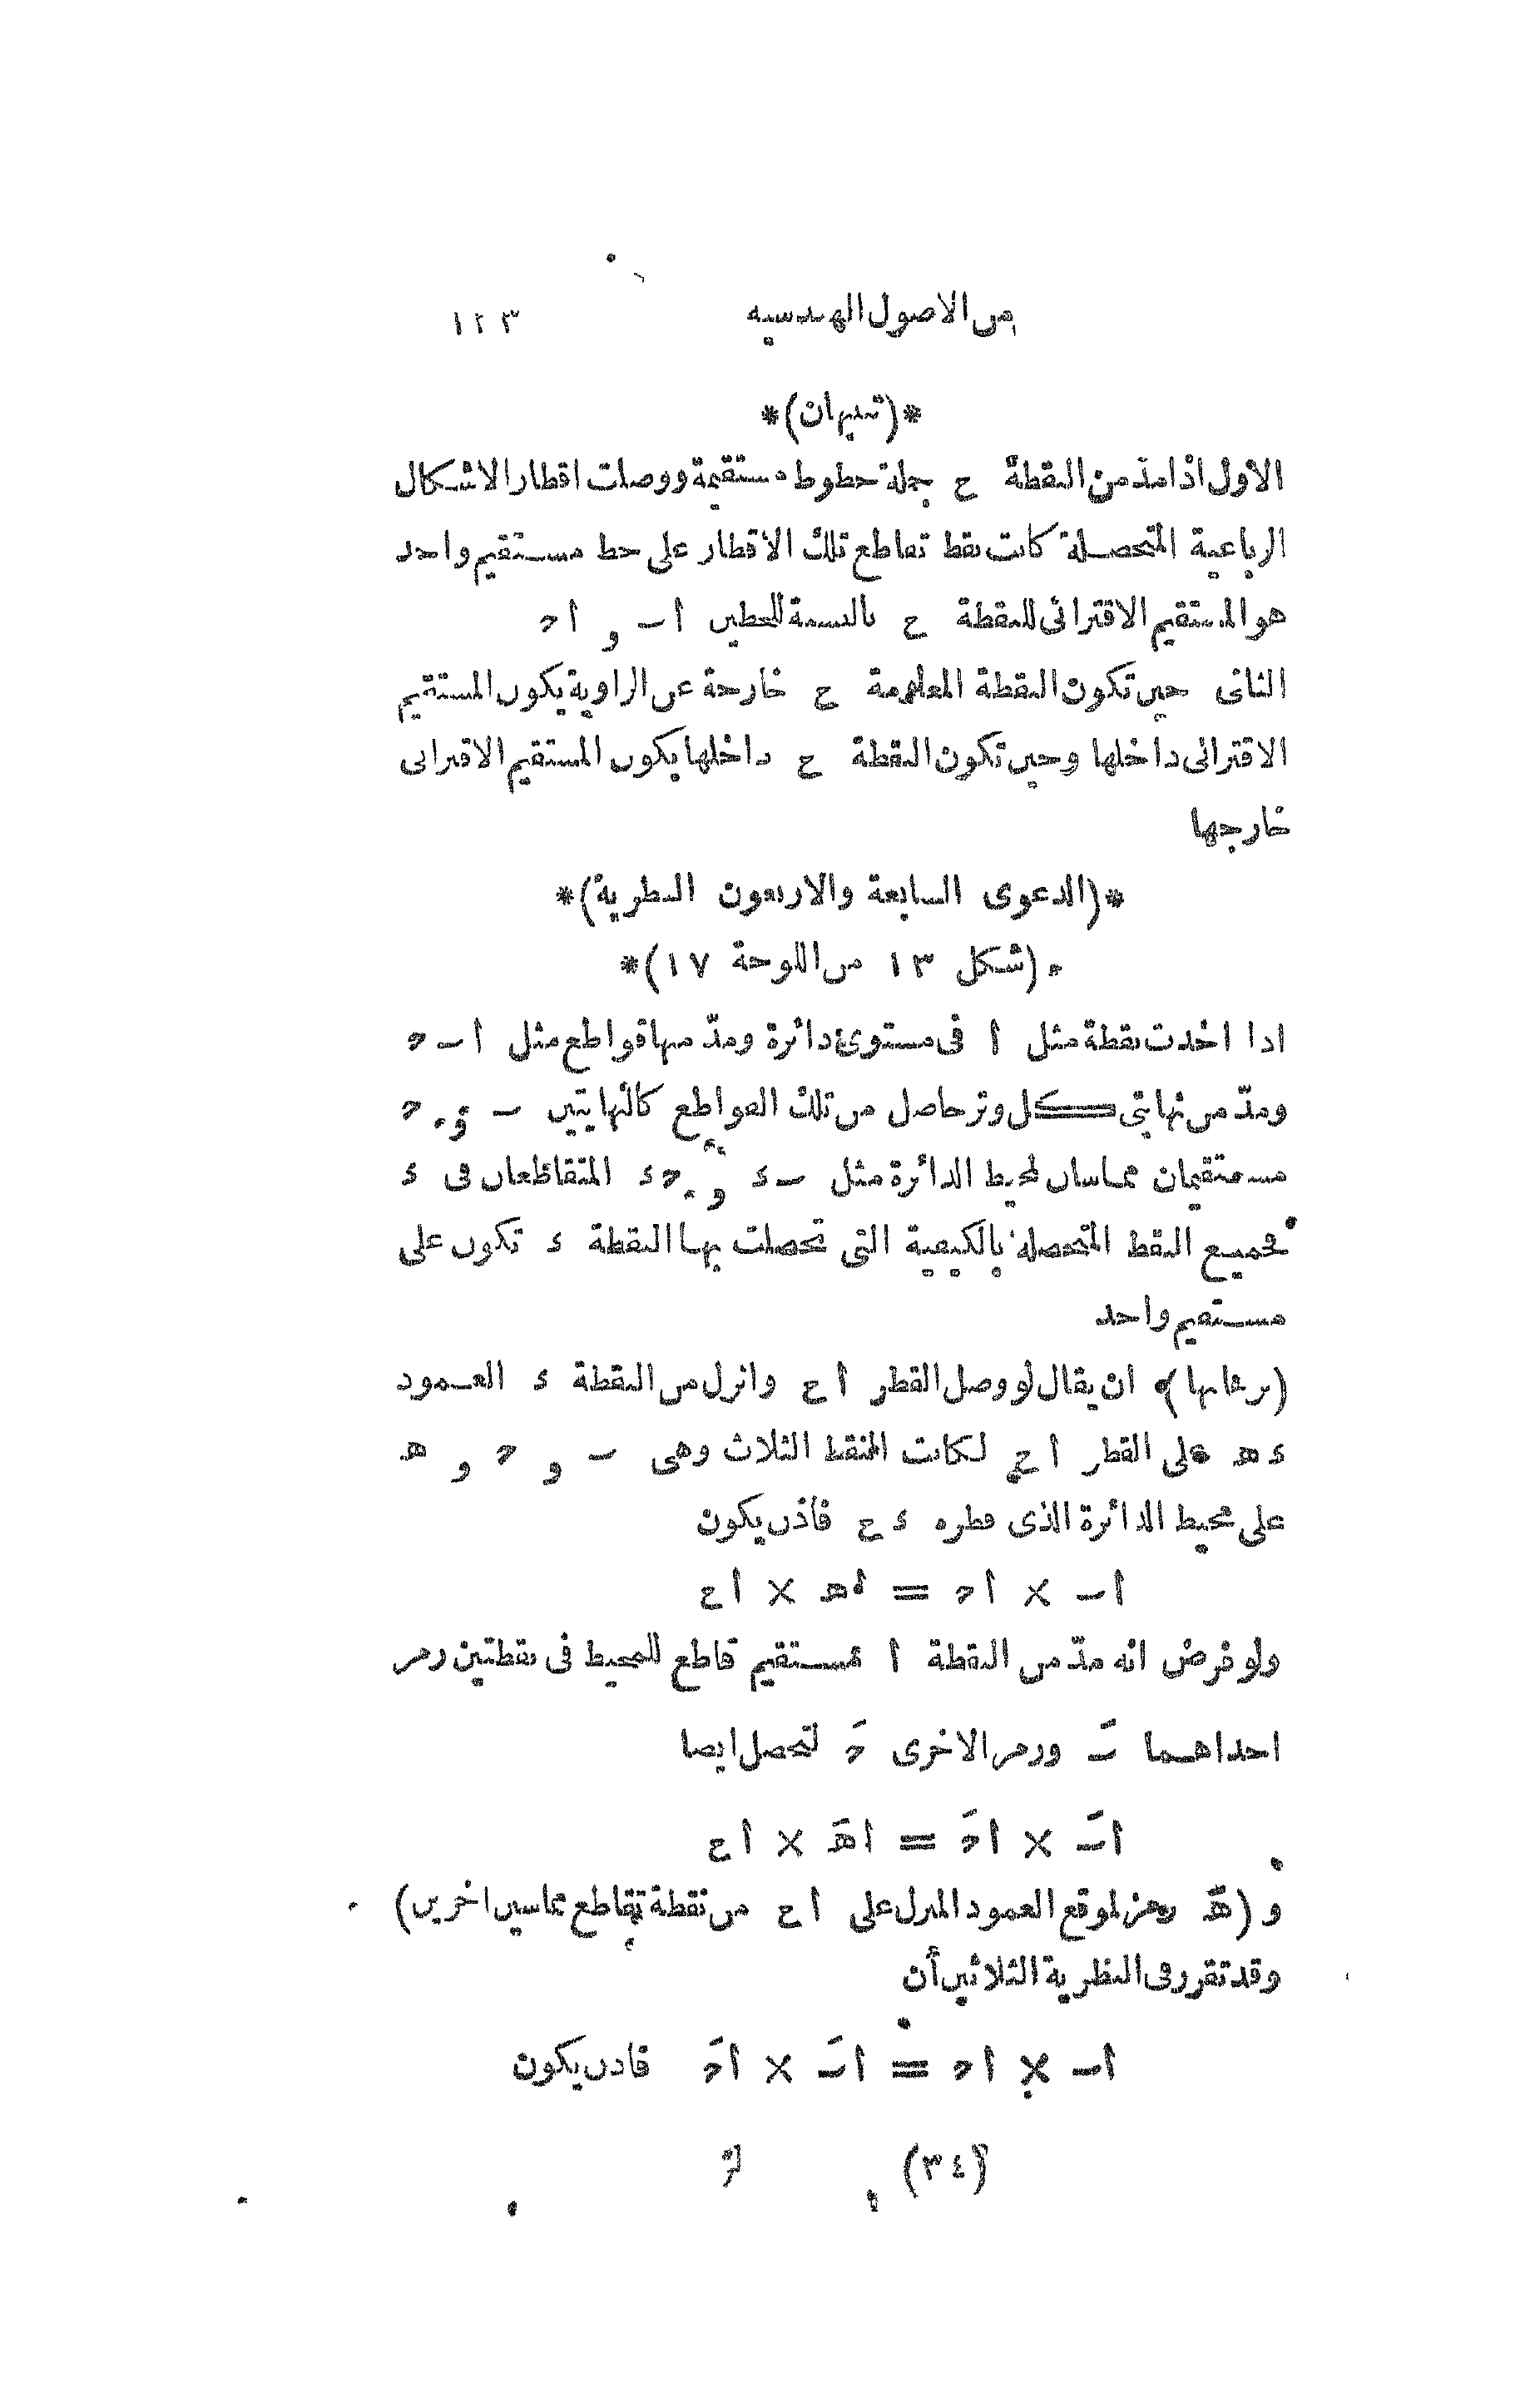 من الاصول الهندسيه ١٢٣
*(تنبيهان)*
الاول اذا مدّ من النقطة ح جملة خطوط مستقيمة ووصلت اقطار الاشكال
الرباعية المتحصلة كانت نقط تقاطع تلك الاقطار على خط مستقيم واحد
هو المستقيم الاقترانى للنقطة ح بالنسبة للخطين اب و ا٥
الثانى حين تكون النقطة المعلومة ح خارجة عن الزاوية يكون المستقيم
الاقترانى داخلها وحين تكون النقطة ح داخلها يكون المستقيم الاقترانى
خارجها
*(الدعوى السابعة والاربعون النظرية)*
*(شكل ١٣ من اللوحة ١٧)*
اذا اخذت نقطة مثل ا فى مستوى دائرة ومدّ منها قواطع مثل اب‍ـ٥
ومدّ من نهايتى كل وتر حاصل من تلك القواطع كالنهايتين ب و ٥
مستقيمان مماسان لمحيط الدائرة مثل بء و ٥ء المتقاطعان فى ء
فجميع النقط المتحصلة بالكيفية التى تحصلت بها النقطة ء تكون على
مستقيم واحد
(برهانها) ان يقال لو وصل القطر اح وانزل من النقطة ء العمود
ءه على القطر اح لكانت النقط الثلاث وهى ب و ٥ و ه
على محيط الدائرة الذى قطره ءح فاذن يكون
اب × ا٥ = اه × اح
ولو فرض انه مدّ من النقطة ا مستقيم قاطع للمحيط فى نقطتين رمز
احداهما بَ ورمز الاخرى ٥َ لتحصل ايضا
ابَ × ا٥َ = اهَ × اح
و (هَ رمز لموقع العمود المنزل على اح من نقطة تقاطع مماسين اخرين)
وقد تقرر فى النظرية الثلاثين أن
اب × ا٥ = ابَ × ا٥َ فاذن يكون
(٣٤)